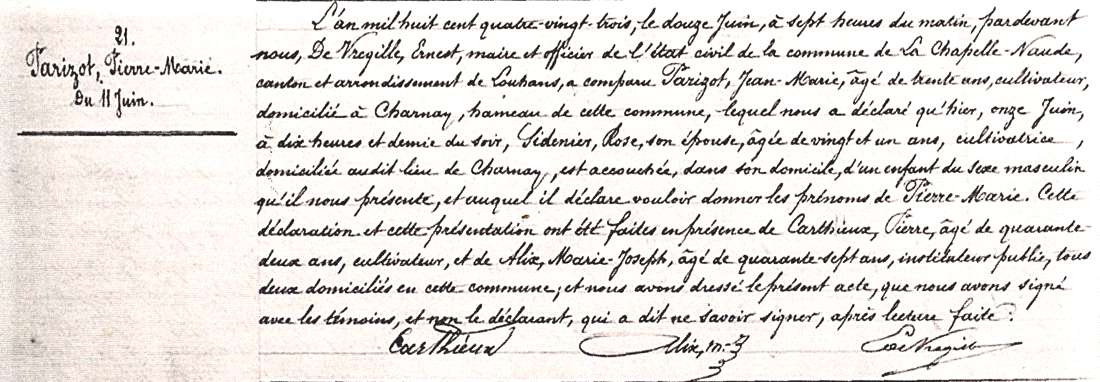 21.
Parizot, Pierre-Marie.
Du 11 Juin.
L'an mil huit cent quatre-vingt-trois, le douze Juin, à sept heures du matin, pardevant
nous, De Vregille, Ernest, maire et officier de l'état civil de la commune de La Chapelle-Naude,
canton et arrondissement de Louhans, a comparu Parizot, Jean-Marie, âgé de trente ans, cultivateur,
domicilié à Charnay, hameau de cette commune, lequel nous a déclaré qu'hier, onze Juin,
à dix heures et demie du soir, Gidenier, Rose, son épouse, âgée de vingt et un ans, cultivatrice,
domiciliée audit lieu de Charnay, est accouchée, dans son domicile, d'un enfant du sexe masculin
qu'il nous présente, et auquel il déclare vouloir donner les prénoms de Pierre-Marie. Cette
déclaration et cette présentation ont été faites en présence de Carthieux, Pierre, âgé de quarante-
deux ans, cultivateur, et de Alix, Marie-Joseph, âgé de quarante-sept ans, instituteur public, tous
deux domiciliés en cette commune; et nous avons dressé le présent acte, que nous avons signé
avec les témoins, et non le déclarant, qui a dit ne savoir signer, après lecture faite.
Carthieux Alix, m-J De Vregille